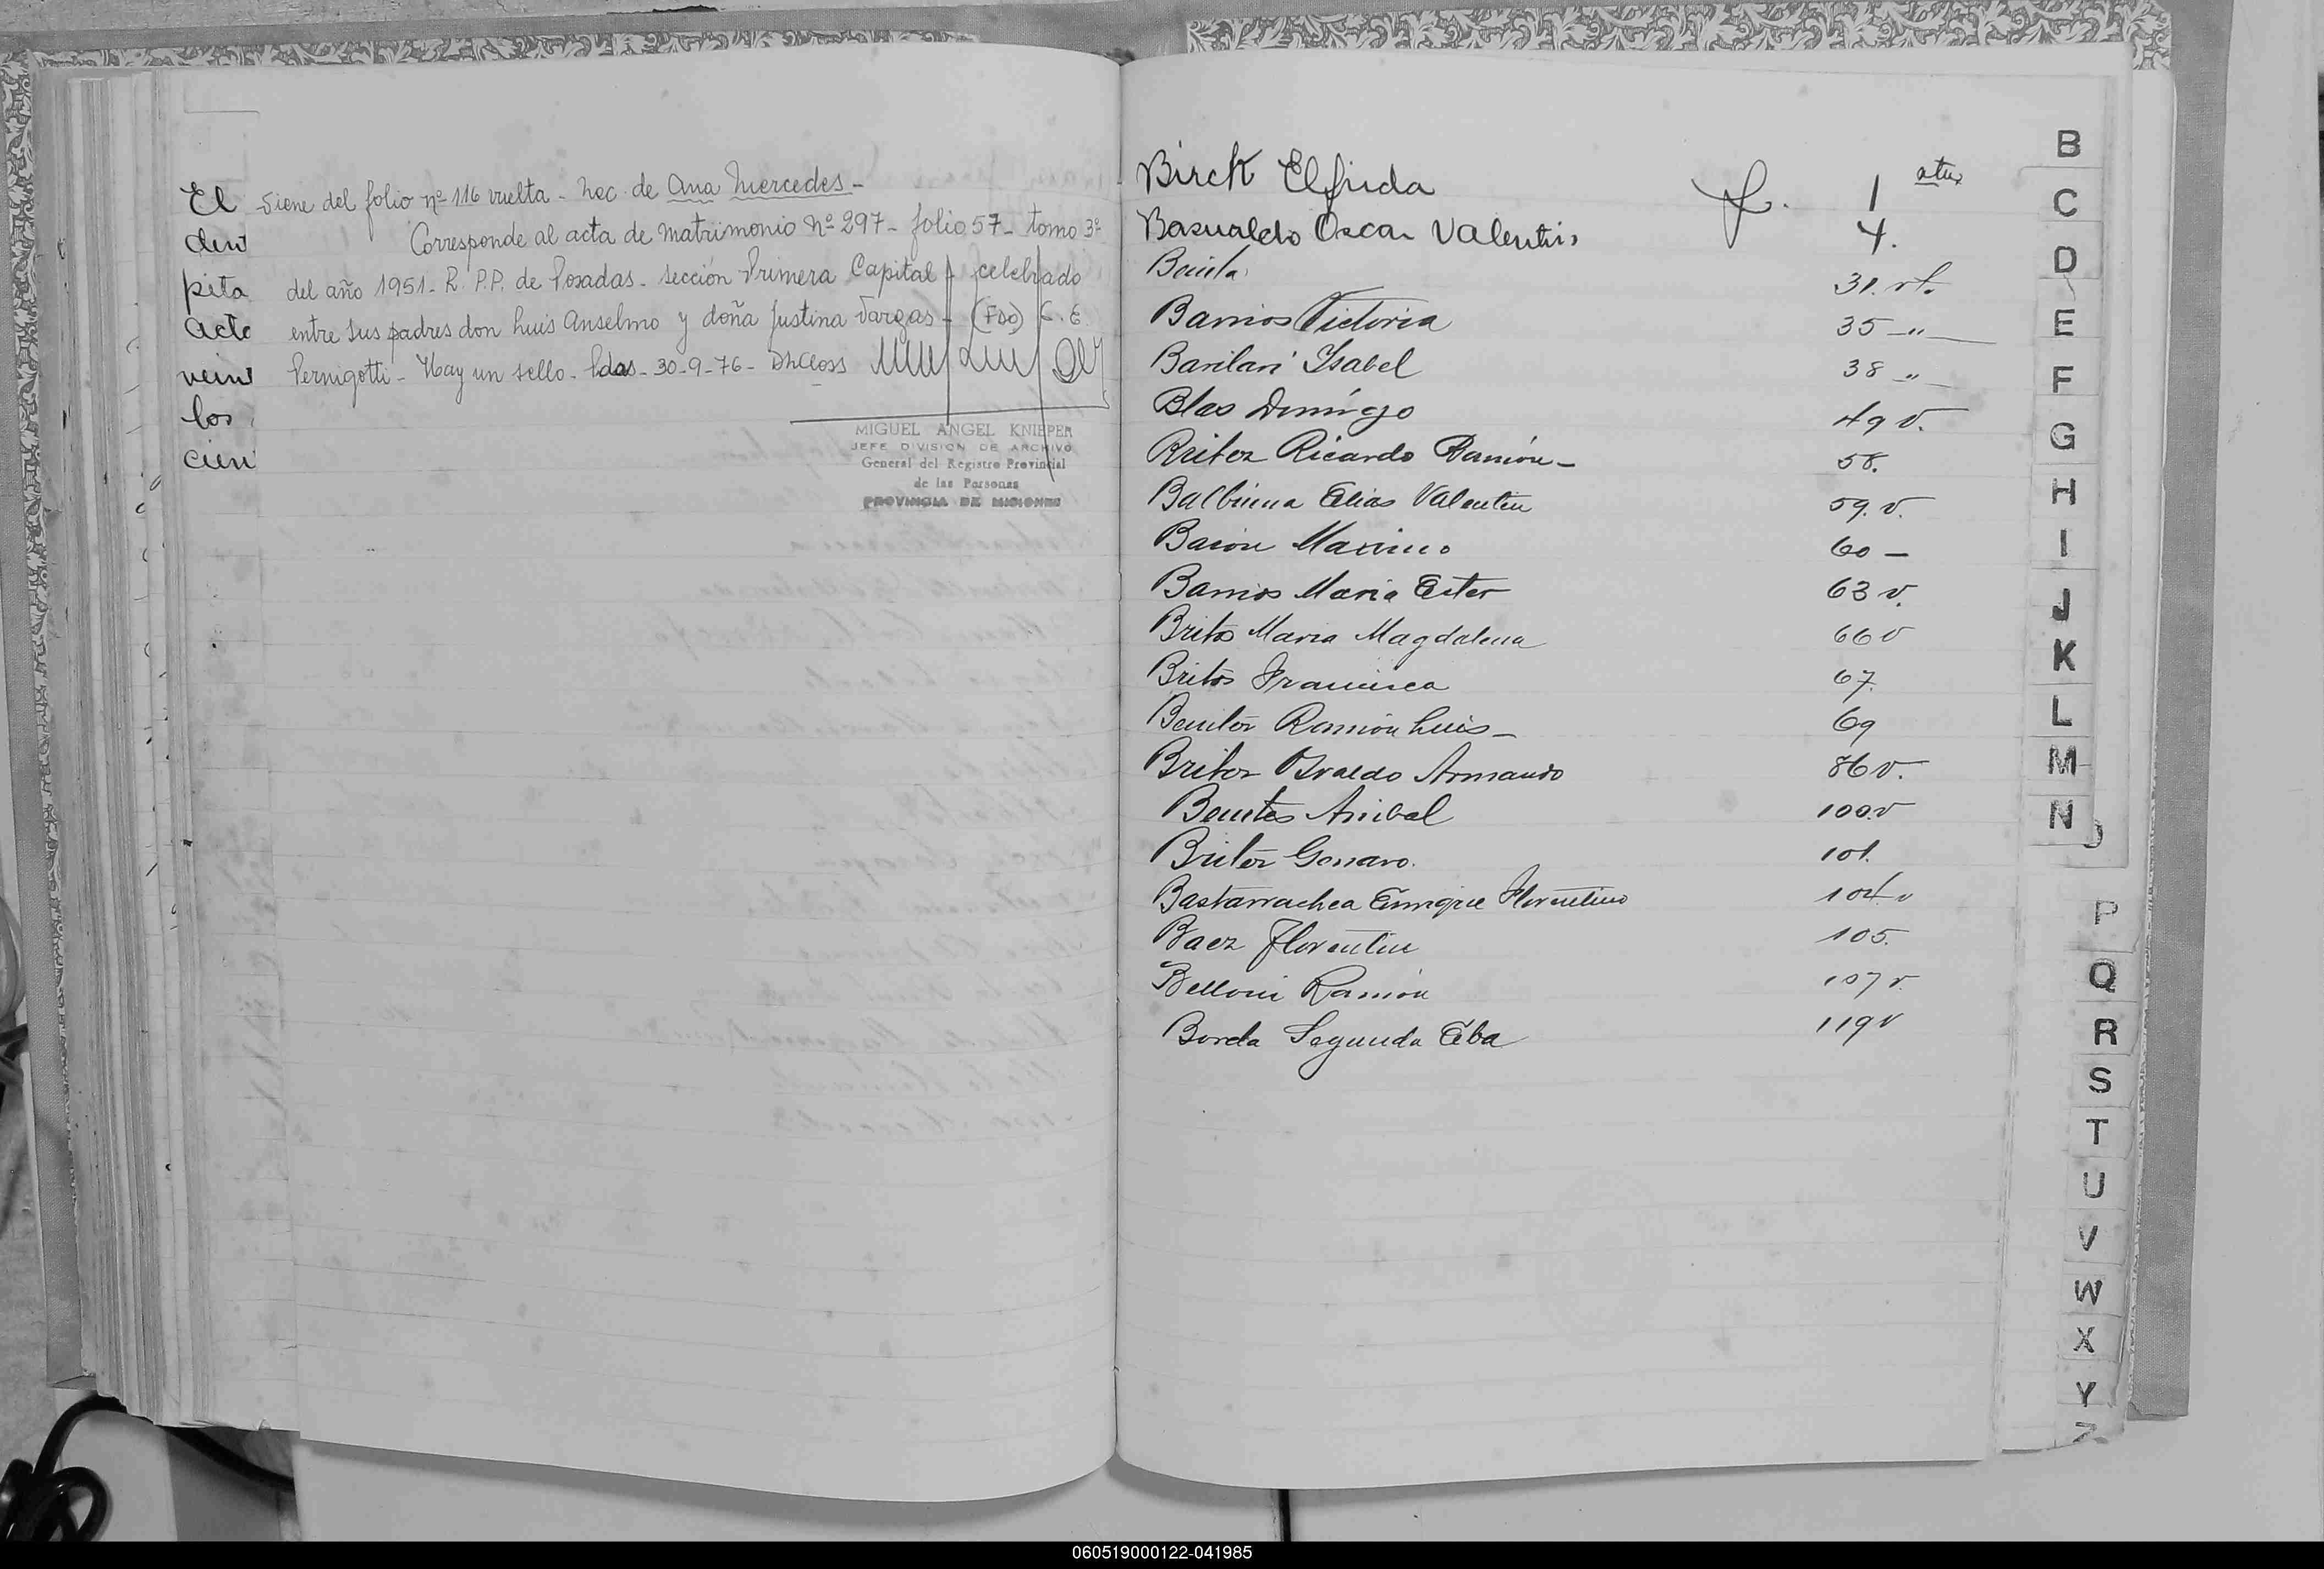 El
den
pita
acto
vein
los
cien
Viene del folio nº 116 vuelta - Nac. de Ana Mercedes -
Corresponde al acta de Matrimonio Nº 297 - folio 57 - tomo 3º
del año 1951 - R. P.P. de Posadas - sección Primera Capital - celebrado
entre sus padres don Luis Anselmo y doña Justina Vargas - (Fdo) C. E.
Pernigotti - Hay un sello - Pdas - 30-9-76 -
MIGUEL ANGEL KNIEPER
JEFE DIVISION DE ARCHIVO
General del Registro Provincial
de las Personas
PROVINCIA DE MISIONES
Birck Elfrida f. 1
Basualdo Oscar Valentin 4.
Benita 31. vt.
Barrios Victoria 35 - "
Barilari Isabel 38 - "
Blas Domingo 49 v.
Britez Ricardo Ramón - 58.
Balbinna Elias Valentin 59. v.
Baron Maximo 60 -
Barrios Maria Ester 63 v.
Brites Maria Magdalena 66 v
Brites Francisca 67.
Benitez Ramón Luis - 69
Britez Osvaldo Armando 86 v.
Benites Anibal 100. v
Britez Genaro. 101.
Bastarrachea Enrique Florentino 104 v
Baez Florentin 105.
Belloni Ramón 107 v.
Borda Segunda Elba 119 v
B
C
D
E
F
G
H
I
J
K
L
M
N
P
Q
R
S
T
U
V
W
X
Y
Z
060519000122-041985